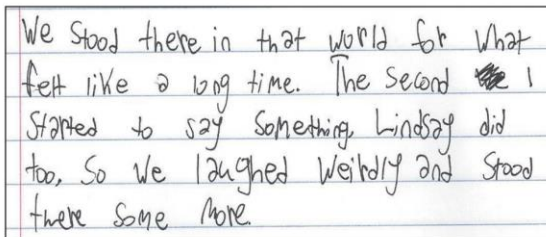 We stood there in that world for what
felt like a long time. The second I
started to say something, Lindsay did
too, so we laughed weirdly and stood
there some more.